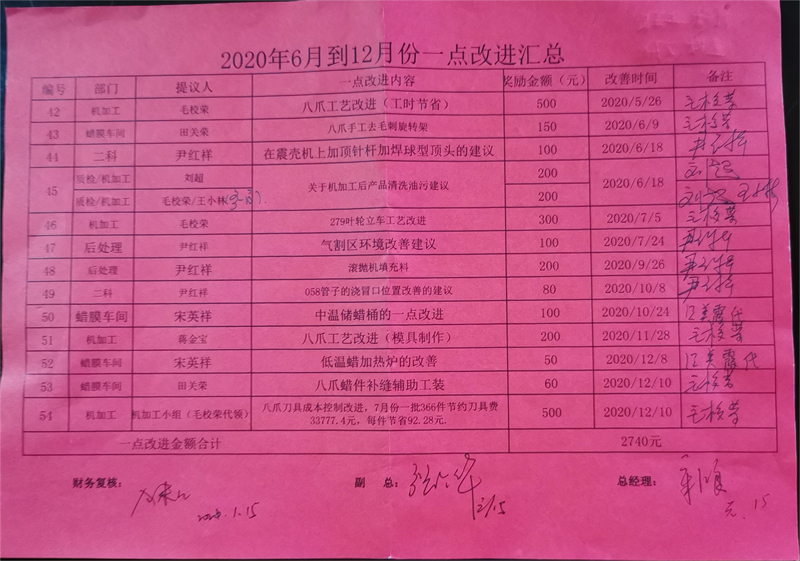 2020年6月到12月份一点改进汇总
编号 部门 提议人 一点改进内容 奖励金额（元） 改善时间 备注
42 机加工 毛校荣 八爪工艺改进（工时节省） 500 2020/5/26 毛校荣
43 蜡膜车间 田关荣 八爪手工去毛刺旋转架 150 2020/6/9 毛校荣
44 二科 尹红祥 在震壳机上加顶针杆加焊球型顶头的建议 100 2020/6/18
45 质检/机加工 刘超 关于机加工后产品清洗油污建议 200 2020/6/18
质检/机加工 毛校荣/王小林 200
46 机加工 毛校荣 279叶轮立车工艺改进 300 2020/7/5 毛校荣
47 后处理 尹红祥 气割区环境改善建议 100 2020/7/24
48 后处理 尹红祥 滚抛机填充料 200 2020/9/26
49 二科 尹红祥 058管子的浇冒口位置改善的建议 80 2020/10/8
50 蜡膜车间 宋英祥 中温储蜡桶的一点改进 100 2020/10/24
51 机加工 蒋金宝 八爪工艺改进（模具制作） 200 2020/11/28 毛校荣
52 蜡膜车间 宋英祥 低温蜡加热炉的改善 50 2020/12/8
53 蜡膜车间 田关荣 八爪蜡件补缝辅助工装 60 2020/12/10 毛校荣
54 机加工 机加工小组（毛校荣代领） 八爪刀具成本控制改进，7月份一批366件节约刀具费 500 2020/12/10 毛校荣
33777.4元，每件节省92.28元.
一点改进金额合计 2740元
财务复核： 副 总： 总经理：